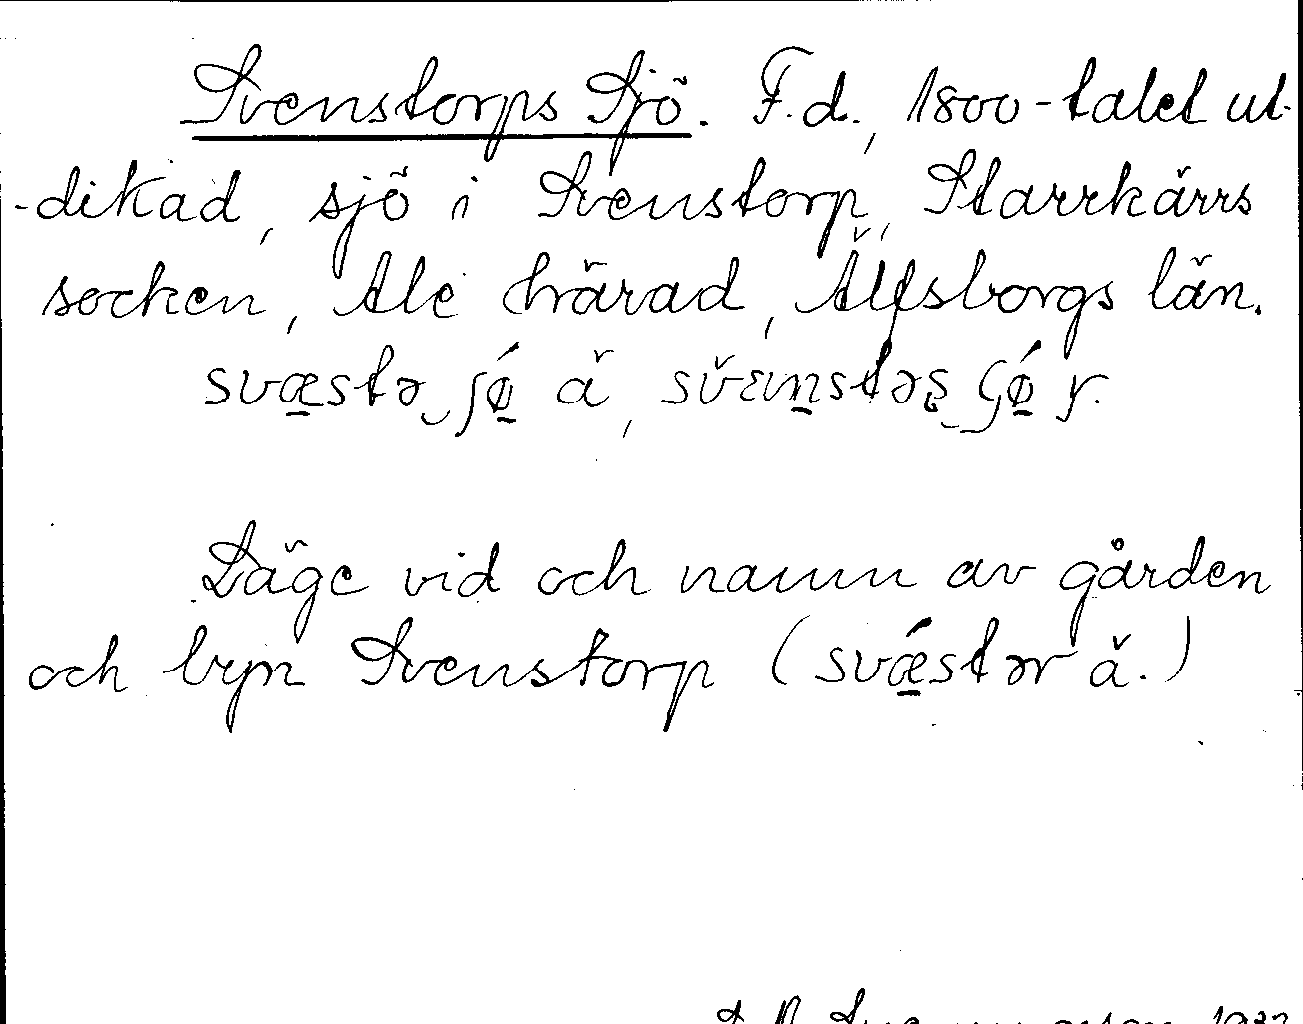 Svenstorps Sjö. F.d., 1800-talet ut-
-dikad, sjö i Svenstorp, Starrkärrs
socken, Ale härad, Älfsborgs län.
svæ̱stə‿ʃǿ̱ ä, svɛin̠stəʂ‿ʃǿ̱ y.
Läge vid och namn av gården
och byn Svenstorp (svǽ̱stər ä.)